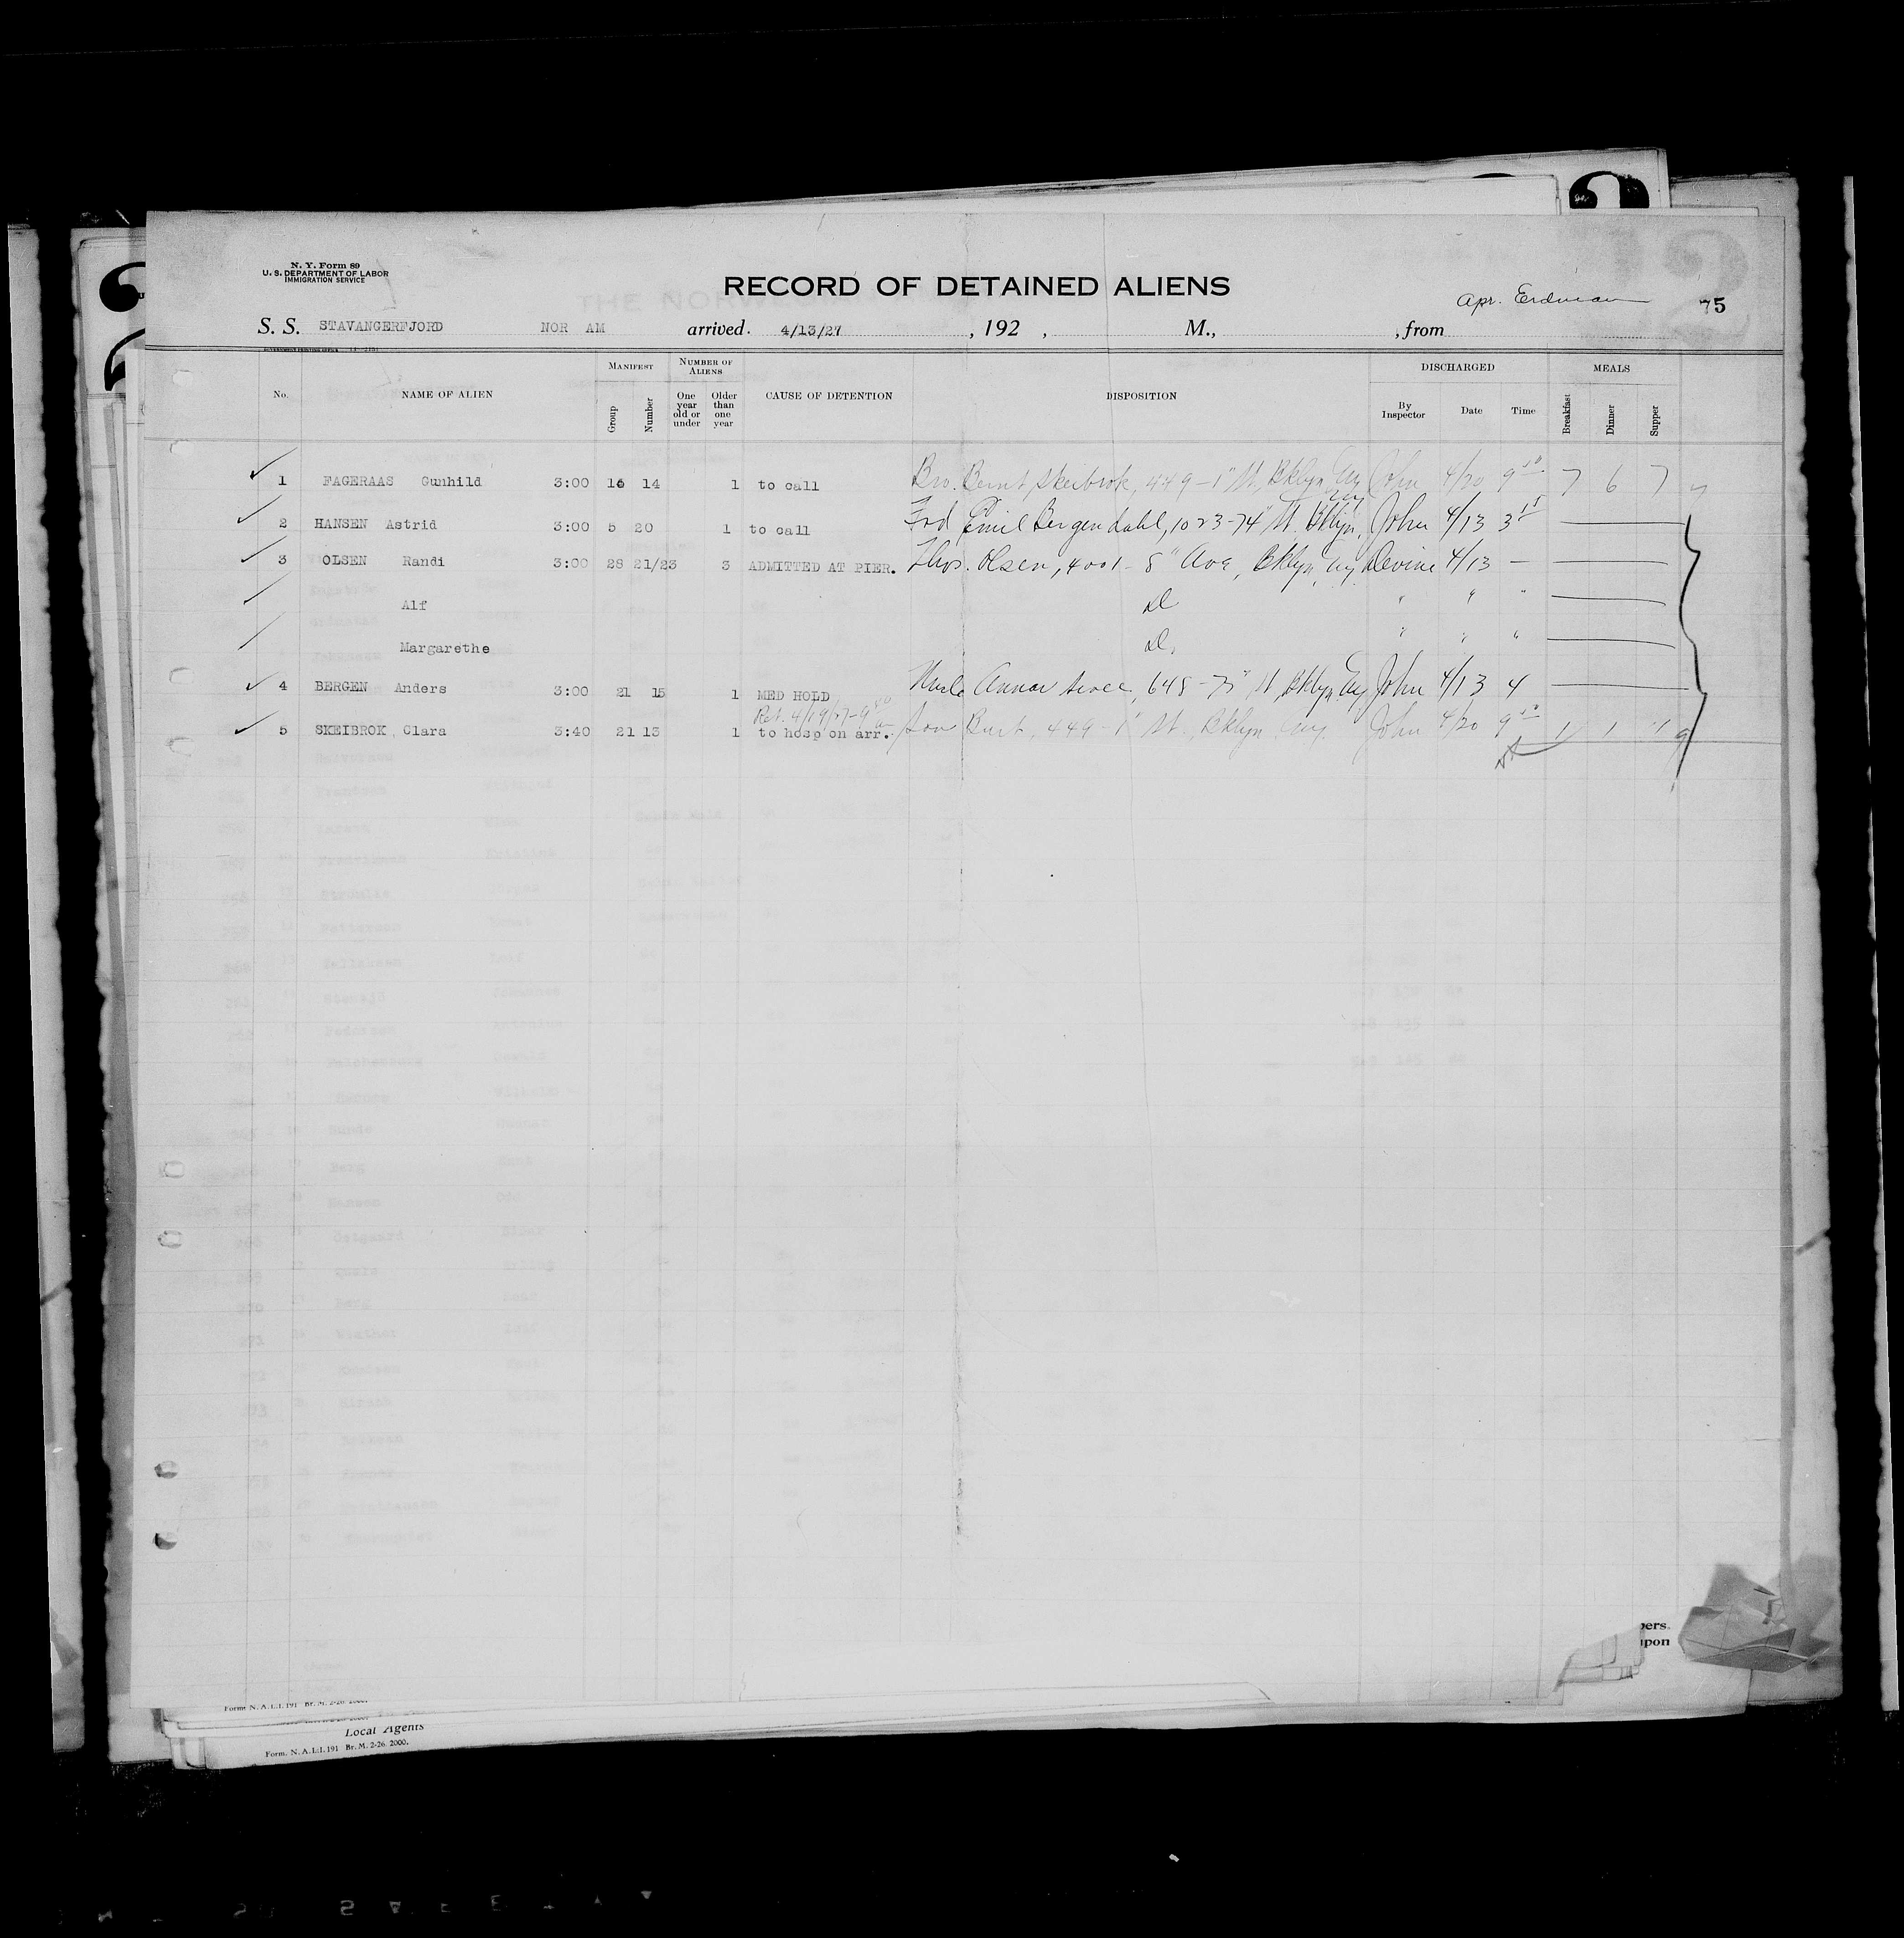 N. Y. Form 89
U. S. DEPARTMENT OF LABOR
IMMIGRATION SERVICE
RECORD OF DETAINED ALIENS
Apr. Erdman
75
S. S. STAVANGERFJORD NOR AM arrived. 4/13/27, 192 , M., , from
MANIFEST NUMBER OF ALIENS DISCHARGED MEALS
No. NAME OF ALIEN Group Number One year old or under Older than one year CAUSE OF DETENTION DISPOSITION By Inspector Date Time Breakfast Dinner Supper
1 FAGERAAS Gunhild 3:00 16 14 1 to call Bro. Bernt Skeibrok, 449-1" St, Bklyn NY John 4/20 9 7 6 7
2 HANSEN Astrid 3:00 5 20 1 to call Frd Emil Bergendahl, 1023-74" St. Bklyn, NY John 4/13 3 15
3 OLSEN Randi 3:00 28 21/23 3 ADMITTED AT PIER. Thos. Olsen, 4001-8" Ave, Bklyn, NY Devine 4/13 —
Alf Do " " "
Margarethe Do. " " "
4 BERGEN Anders 3:00 21 15 1 MED HOLD Uncle 648-75" St Bklyn NY John 4/13 4
Ret. 4/19/27-9
5 SKEIBROK, Clara 3:40 21 13 1 to hosp on arr. Son Burt, 449-1" St., Bklyn NY. John 4/20 9 1 1 1
pers.
upon
Form N. A. L. I. 191 Br. M. 2-26. 2000.
Local Agents
Form. N. A. L. I. 191 Br. M. 2-26. 2000.